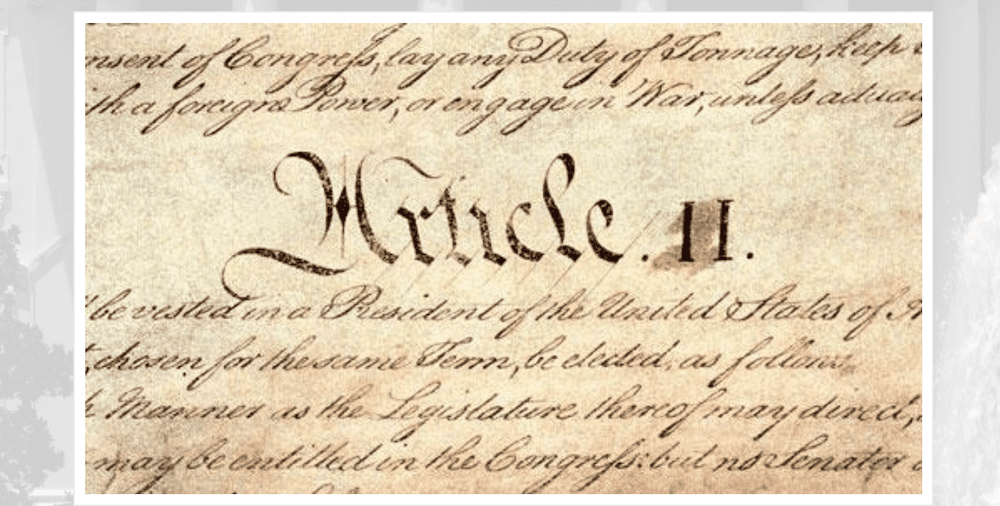 nsent of Congress, lay any Duty of Tonnage, keep
th a foreign Power, or engage in War, unless actually
Article. II.
be vested in a President of the United States of A
chosen for the same Term, be elected, as follows
Manner as the Legislature thereof may direct,
may be entitled in the Congress: but no Senator